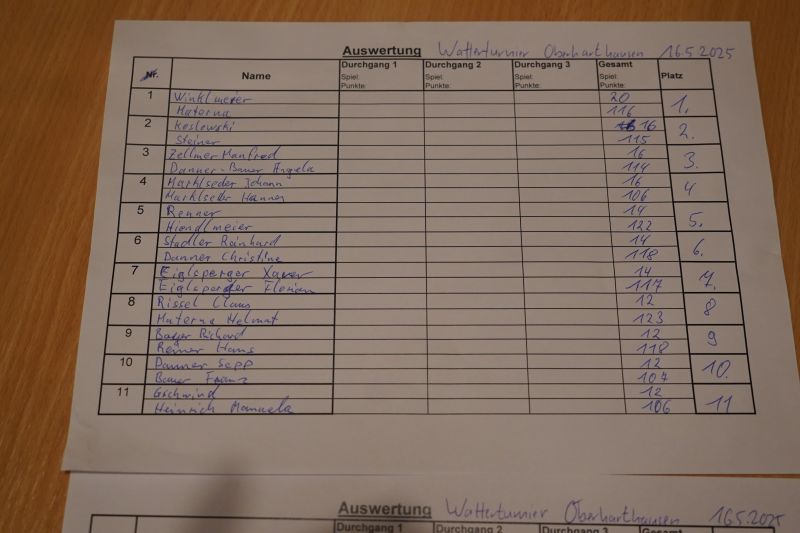 Auswertung Watterturnier Oberharthausen 16.5.2025
Nr. Name Durchgang 1 Durchgang 2 Durchgang 3 Gesamt Platz
Spiel: Spiel: Spiel: Spiel:
Punkte: Punkte: Punkte: Punkte:
1 Winklmeier 20 1.
Materna 116
2 Koslowski 16 2.
Steiner 115
3 Zellner Manfred 16 3.
Danner-Bauer Angela 114
4 Marklseder Johann 16 4
Marklseder Hannes 106
5 Renner 14 5.
Hiendlmeier 122
6 Stadler Reinhard 14 6.
Danner Christine 118
7 Eiglsperger Xaver 14 7.
Eiglsperger Florian 117
8 Rissel Claus 12 8
Materna Helmut 123
9 Bayer Richard 12 9
Reiner Hans 118
10 Danner Sepp 12 10.
Bauer Franz 107
11 Gschwind 12 11
Heinrich Manuela 106
Auswertung Watterturnier Oberharthausen 16.5.2025
Durchgang 1 Durchgang 2 Durchgang 3 Gesamt